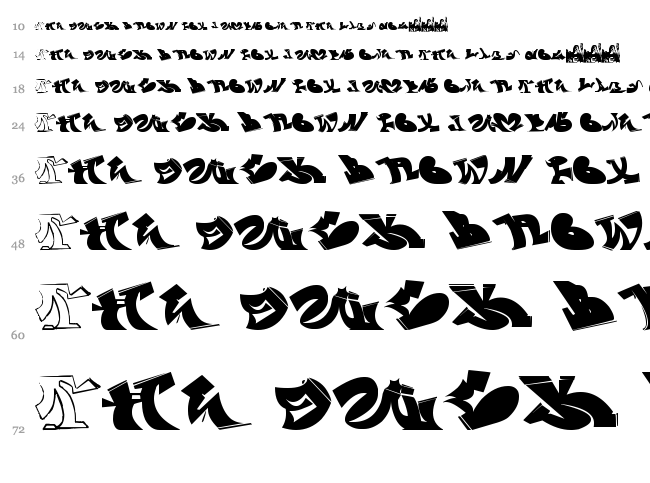 10 THE QUICK BROWN FOX JUMPS OVER THE LAZY DOG
14 THE QUICK BROWN FOX JUMPS OVER THE LAZY DOG
18 THE QUICK BROWN FOX JUMPS OVER THE LAZY
24 THE QUICK BROWN FOX JUMPS
36 THE QUICK BROWN FOX
48 THE QUICK BROW
60 THE QUICK B
72 THE QUICK